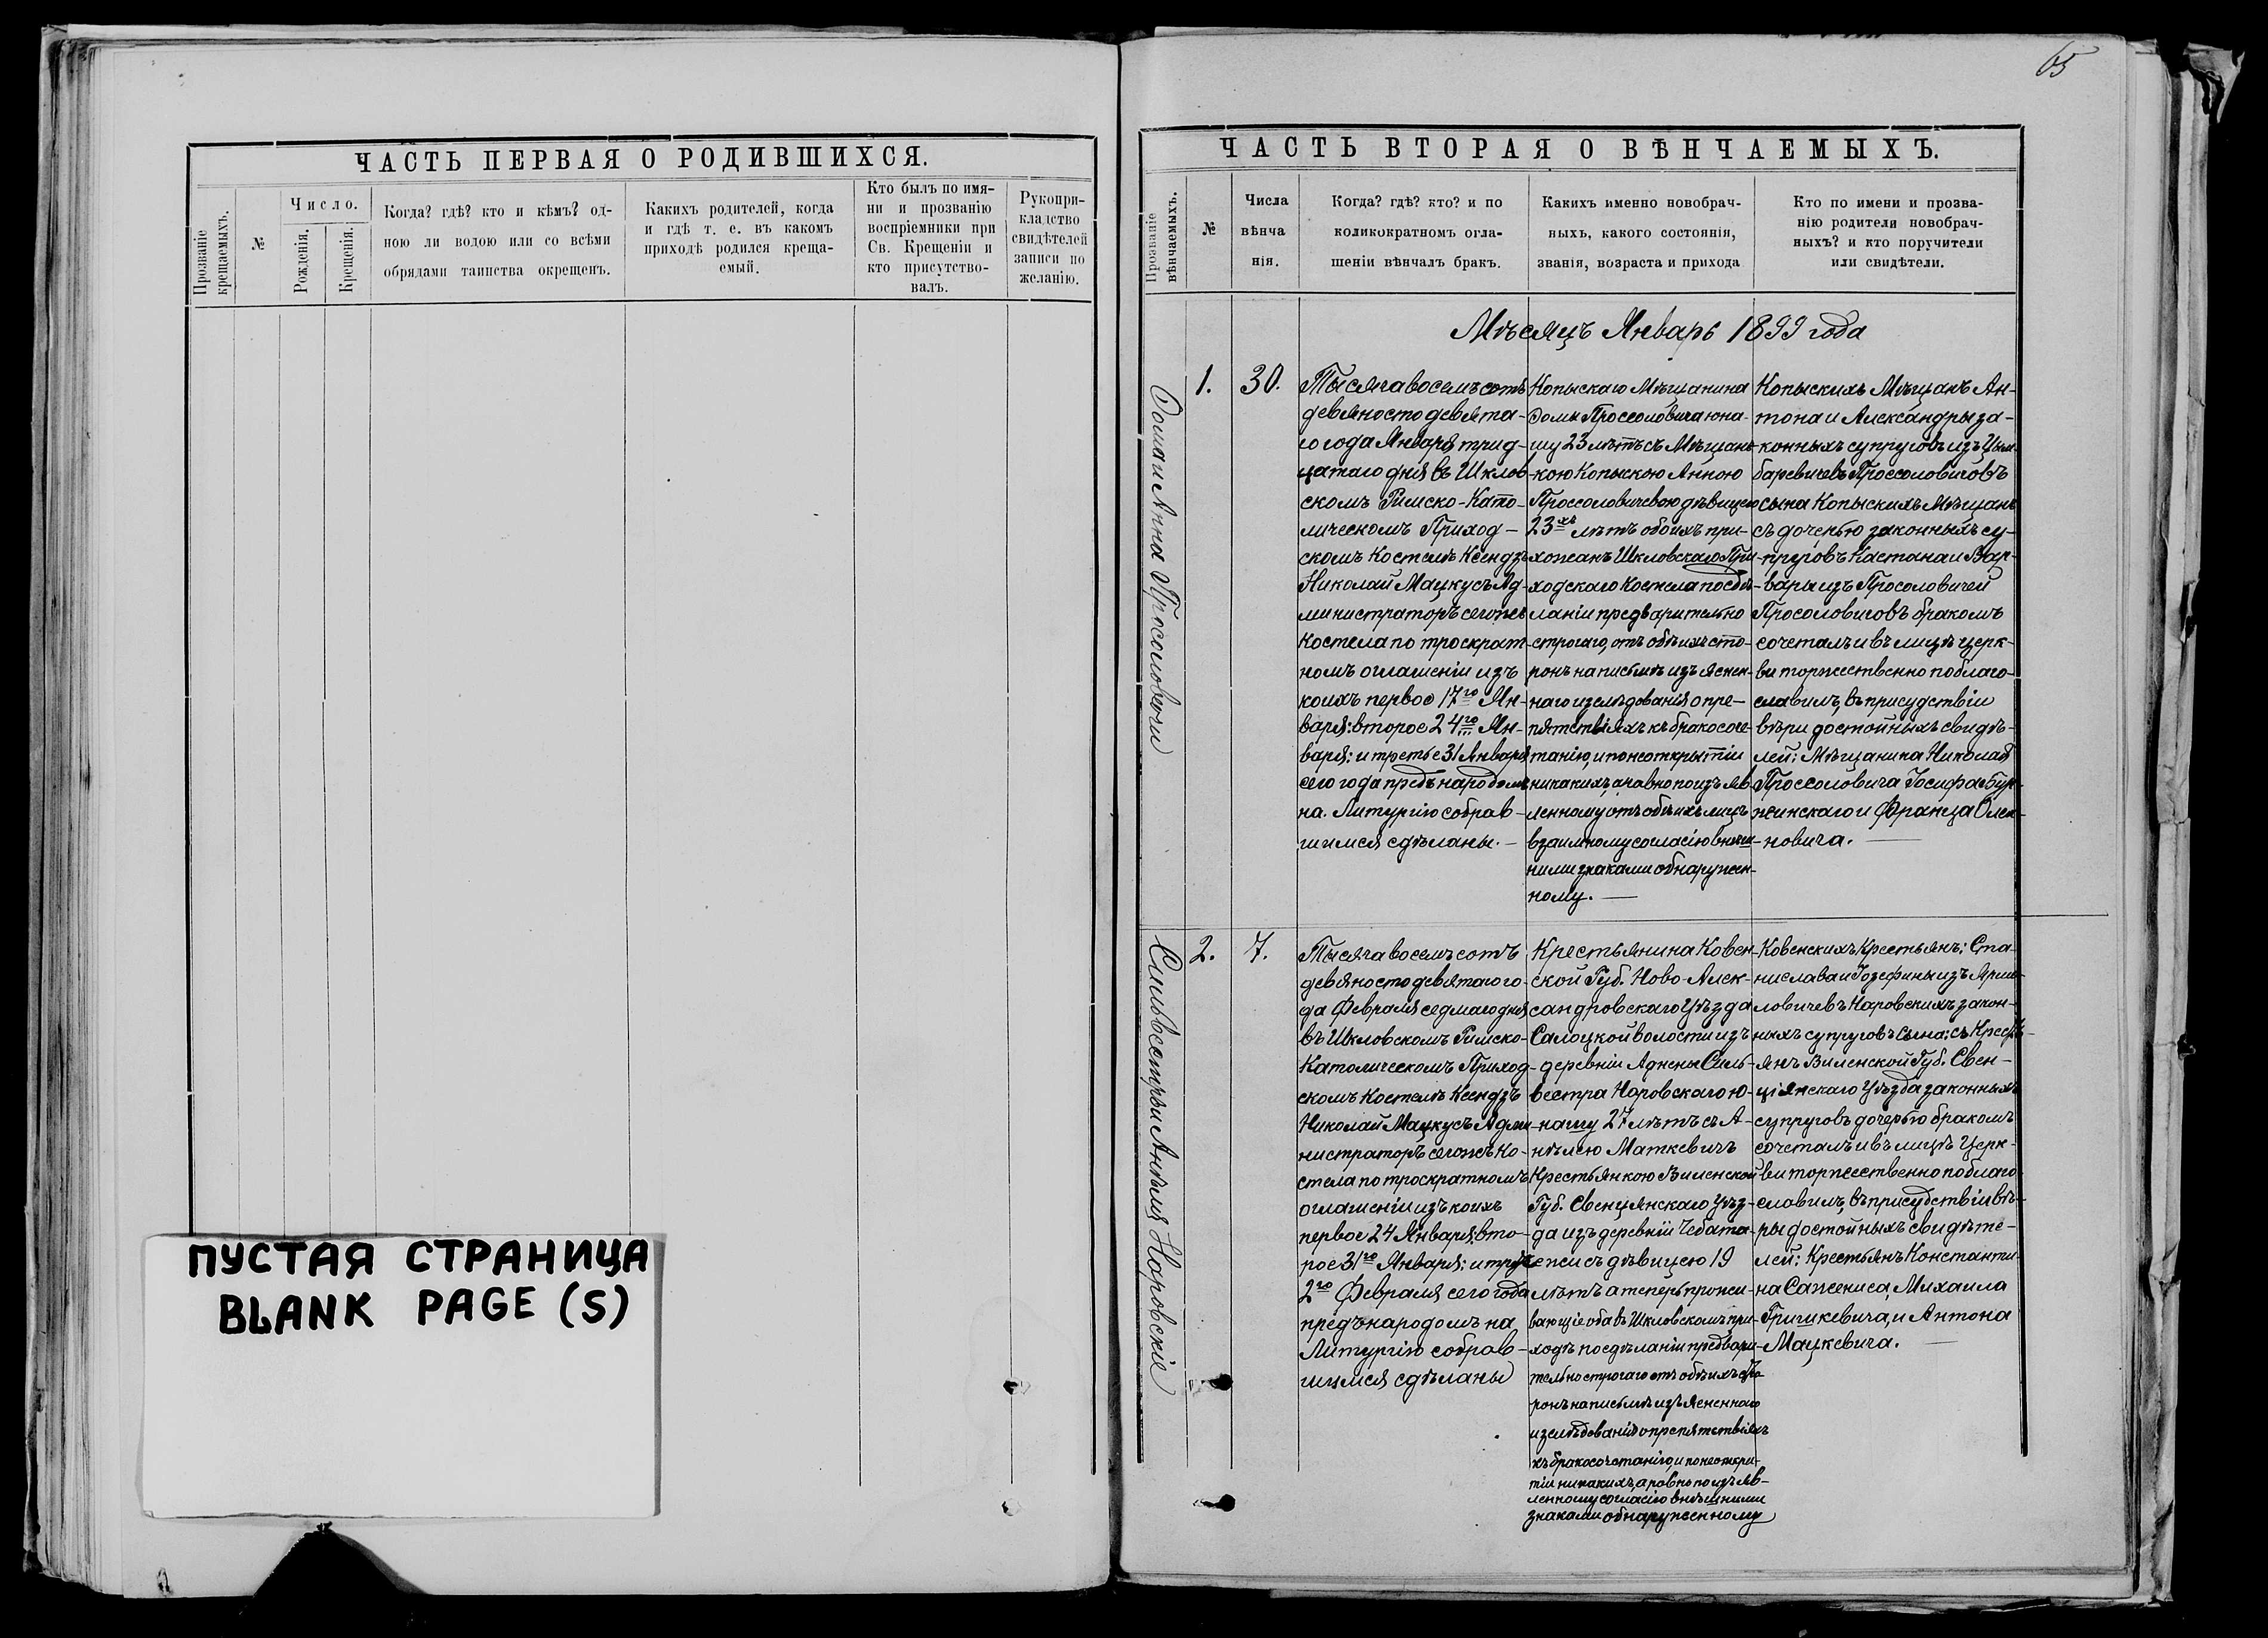 ЧАСТЬ ПЕРВАЯ О РОДИВШИХСЯ.
Прозваніе крещаемыхъ.
№
Число.
Рожденія.
Крещенія.
Когда? гдѣ? кто и кѣмъ? од-
ною ли водою или со всѣми
обрядами таинства окрещенъ.
Какихъ родителей, когда
и гдѣ т. е. въ какомъ
приходѣ родился креща-
емый.
Кто былъ по имя-
ни и прозванію
воспріемники при
Св. Крещеніи и
кто присутство-
валъ.
Рукопри-
кладство
свидѣтелей
записи по
желанію.
ПУСТАЯ СТРАНИЦА
BLANK PAGE (S)
65
ЧАСТЬ ВТОРАЯ О ВѢНЧАЕМЫХЪ.
Прозваніе вѣнчаемыхъ.
№
Числа
вѣнча
нія.
Когда? гдѣ? кто? и по
коликократномъ огла-
шеніи вѣнчалъ бракъ.
Какихъ именно новобрач-
ныхъ, какого состоянія,
званія, возраста и прихода
Кто по имени и прозва-
нію родители новобрач-
ныхъ? и кто поручители
или свидѣтели.
Мѣсяцъ Январь 1899 года
1.
30.
Тысяча восемъ сотъ
девяносто девята-
го года Января трид-
цатаго дня въ Шклов
скомъ Римско-Като-
лическомъ Приход-
скомъ Костелѣ Ксендзъ
Николай Мацкусъ Ад-
министраторъ сегоже
Костела по троекрат
номъ оглашеніи изъ
коихъ первое 17го Ян-
варя: второе 24го Ян-
варя: и третье 31 Января
сего года предъ народомъ
на Литургію собрав-
шимся сдѣланы.-
Копыскаго Мѣщанина
Прос­соловича юна-
шу 23 лѣтъ съ Мѣщан-
кою Копыскою Анною
Проссоловичевою дѣвицею
23хъ лѣтъ обоихъ при-
хожанъ Шкловскаго При-
ходскаго Костела по сдѣ-
ланіи предварительно
строгаго, отъ обѣихъ сто-
ронъ на письмѣ изъяснен-
наго изслѣдованія о пре-
пятствіяхъ къ бракосоче-
танію, и по неоткрытіи
никакихъ, а равно по изъяв
ленному отъ обѣихъ лицъ
взаимному согласію внѣш-
ними знаками обнаружен-
ному.
Копыскихъ Мѣщанъ Ан-
тона и Александры за-
конныхъ супруговъ изъ
Проссоловичовъ
сына Копыскихъ Мѣщанъ
съ дочерью законныхъ су-
пруговъ Кастана и Вар-
вары изъ Просоловичей
Просоловичовъ бракомъ
сочеталъ и въ лицѣ церк-
ви торжественно поблаго-
славилъ, въ присудствіи
вѣри достойныхъ свидѣ-
лей: Мѣщанина Николая
Проссоловича Іосифа
и Франца
новича.
2.
7.
Сильвестръ и Анѣля Наровскіе
Тысяча восемъ сотъ
девяносто девятаго го-
да Февраля седмаго дня
въ Шкловскомъ Римско-
Католическомъ Приход-
скомъ Костелѣ Ксендзъ
Николай Мацкусъ Адми-
нистраторъ сегожъ Ко-
стела по троекратномъ
оглашеніи изъ коихъ
первое 24 Января, вто-
рое 31го Января: и третье
2го Февраля сего года
предъ народомъ на
Литургію собрав-
шимся сдѣланы
Крестьянина Ковен-
ской Губ. Ново-Алек-
сандровскаго Уѣзда
Салоцкой волости изъ
деревни Силь-
вестра Наровскаго ю-
нашу 27 лѣтъ съ А-
нѣлею Маткевичъ
Крестьянкою Виленской
Губ. Свенцянскаго Уѣз-
да изъ деревни
дѣвицею 19
лѣтъ а теперь прожи-
вающіе оба въ Шкловскомъ при-
ходѣ по сдѣланіи предвари-
тельно строгаго отъ обѣихъ сто
ронъ на письмѣ изъясненнаго
изслѣдованія о препятствіяхъ
къ бракосочетанію, и по неоткры-
тіи никакихъ, а ровно по изъяв-
ленному согласію внѣшними
знаками обнаруженному
Ковенскихъ Крестьянъ: Ста-
нислава и Іозефины изъ
Наровскихъ закон-
ныхъ супруговъ сына: съ Кресть-
янъ Виленской Губ. Свен-
ціянскаго Уѣзда законныхъ
супруговъ дочерью бракомъ
сочеталъ и въ лицѣ Церк-
ви торжественно поблаго-
славилъ, въ присудствіи вѣ-
ры достойныхъ свидѣте-
лей: Крестьянъ Константи-
на Сапжениса, Михаила
Гришкевича, и Антона
Мацкевича.